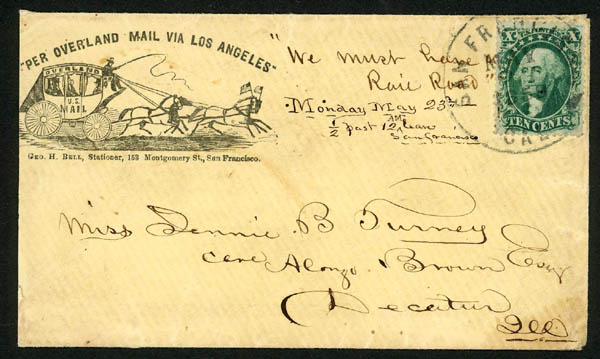 "PER OVERLAND MAIL VIA LOS ANGELES"
OVERLAND
U.S.
MAIL
GEO. H. BELL, Stationer, 153 Montgomery St., San Francisco.
"We must have a
Rail Road"
Monday May 23rd
½ past 12 AM leave
San Francisco
SAN FRAN
CAL
X
TEN CENTS
Miss Jennie B Turney
Care Alonzo Brown Esqr
Decatur
Ill